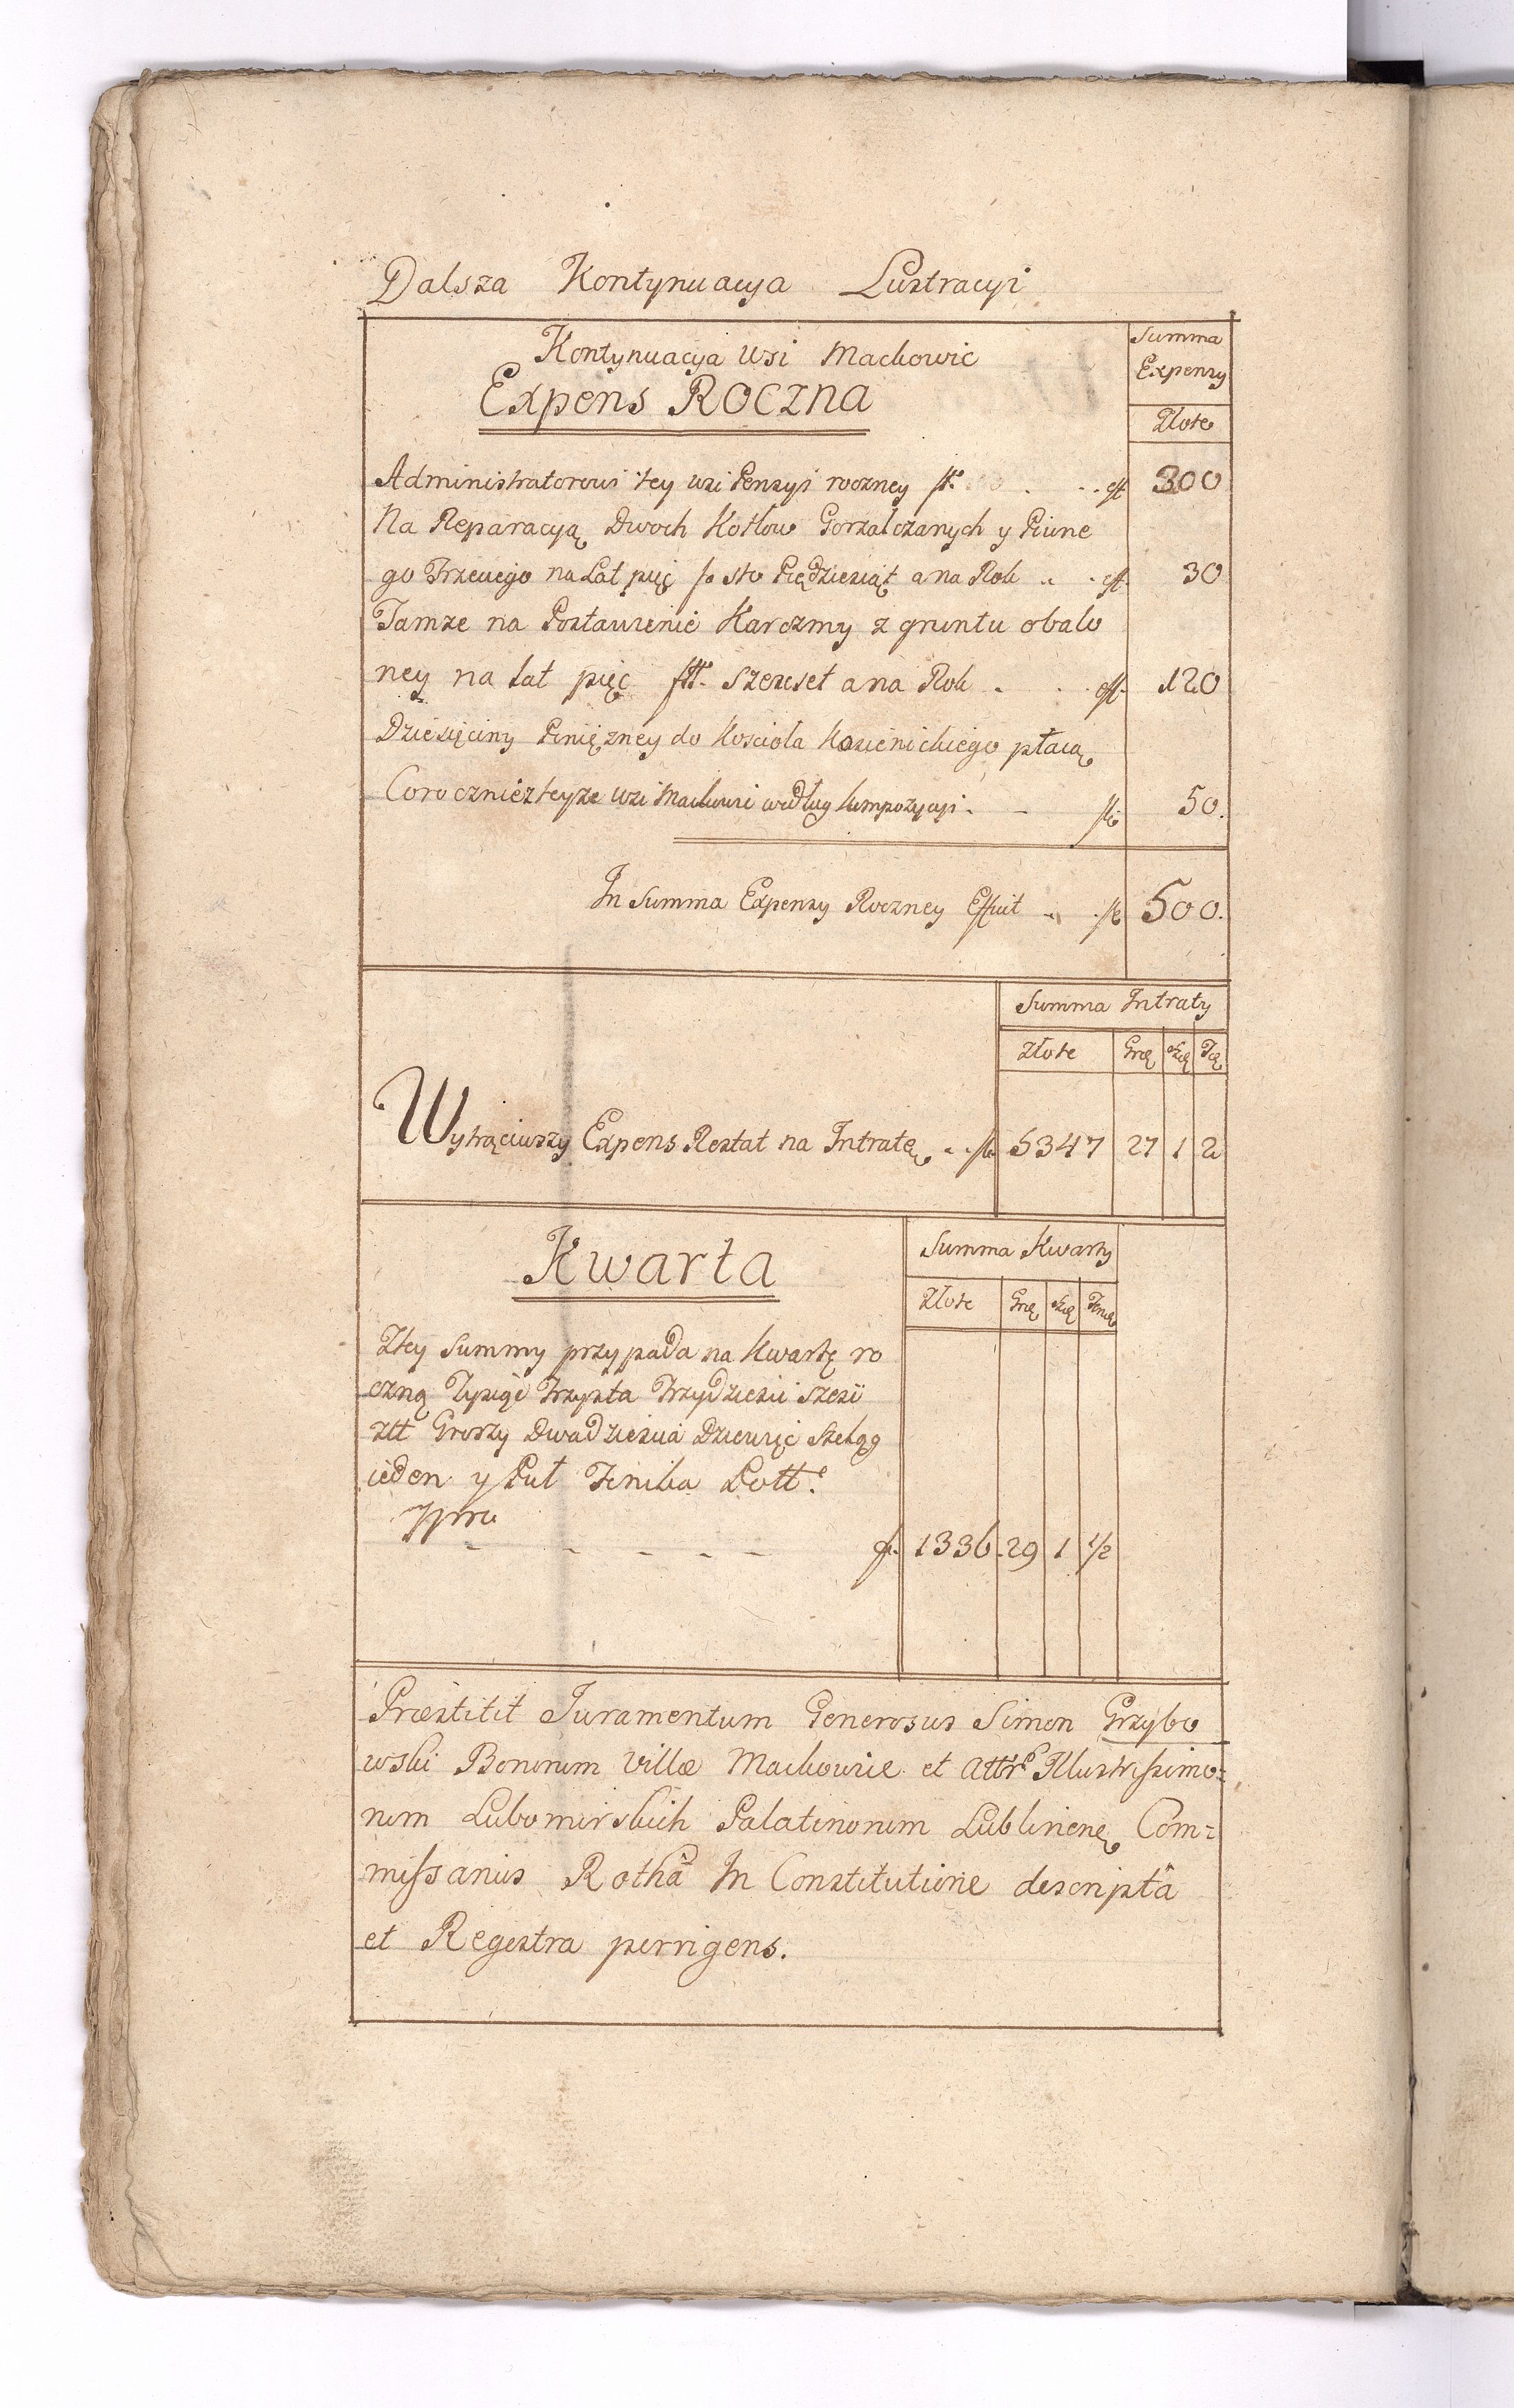 Dalsza Kontynuacya Lustracyi
Kontynuacya Wsi Machowic
Summa
Expensy
Expens Roczna
Złote
Administratorowi tey wsi Pensyi roczney 300
Na Reparacyą Dwoch Kotłow Gorzalczanych y Piwne
go Trzeciego na Lat pięć fo sto Piędziesiąt a na Rok 30
Tamze na Postawienie Karczmy z gruntu obalo
ney na Lat pięć Szescset a na Rok 120
Dziesięciny Pinięzney do Koscioła Kozienickiego płacą
Corocznie z teyze wsi Machowic według kompozycyi 50.
In Summa Expensy Roczney Effuit 500.
Summa Intraty
Złote Grę Szę Tę
Wytrąciwszy Expens Restat na Intratę 5347 27 1 2
Kwarta
Summa Kwarty
Złote Grę Szę
Z tey Summy przypada na Kwartę ro
czną Tysiąc Trzysta Trzydziesci szesc
złt Groszy Dwadziescia Dziewięc Szeląg
ieden y Puł Ternika
1336. 29 1 1/2
Præstitit Juramentum Generosus Simon Grzybo
wski Bonorum Villæ Machowie et Attr. Illustrissimo=
rum Lubomirskich Palatinorum Lublinens. Com=
missarius Rothâ In Constitutione descriptâ
et Regestra porrigens.